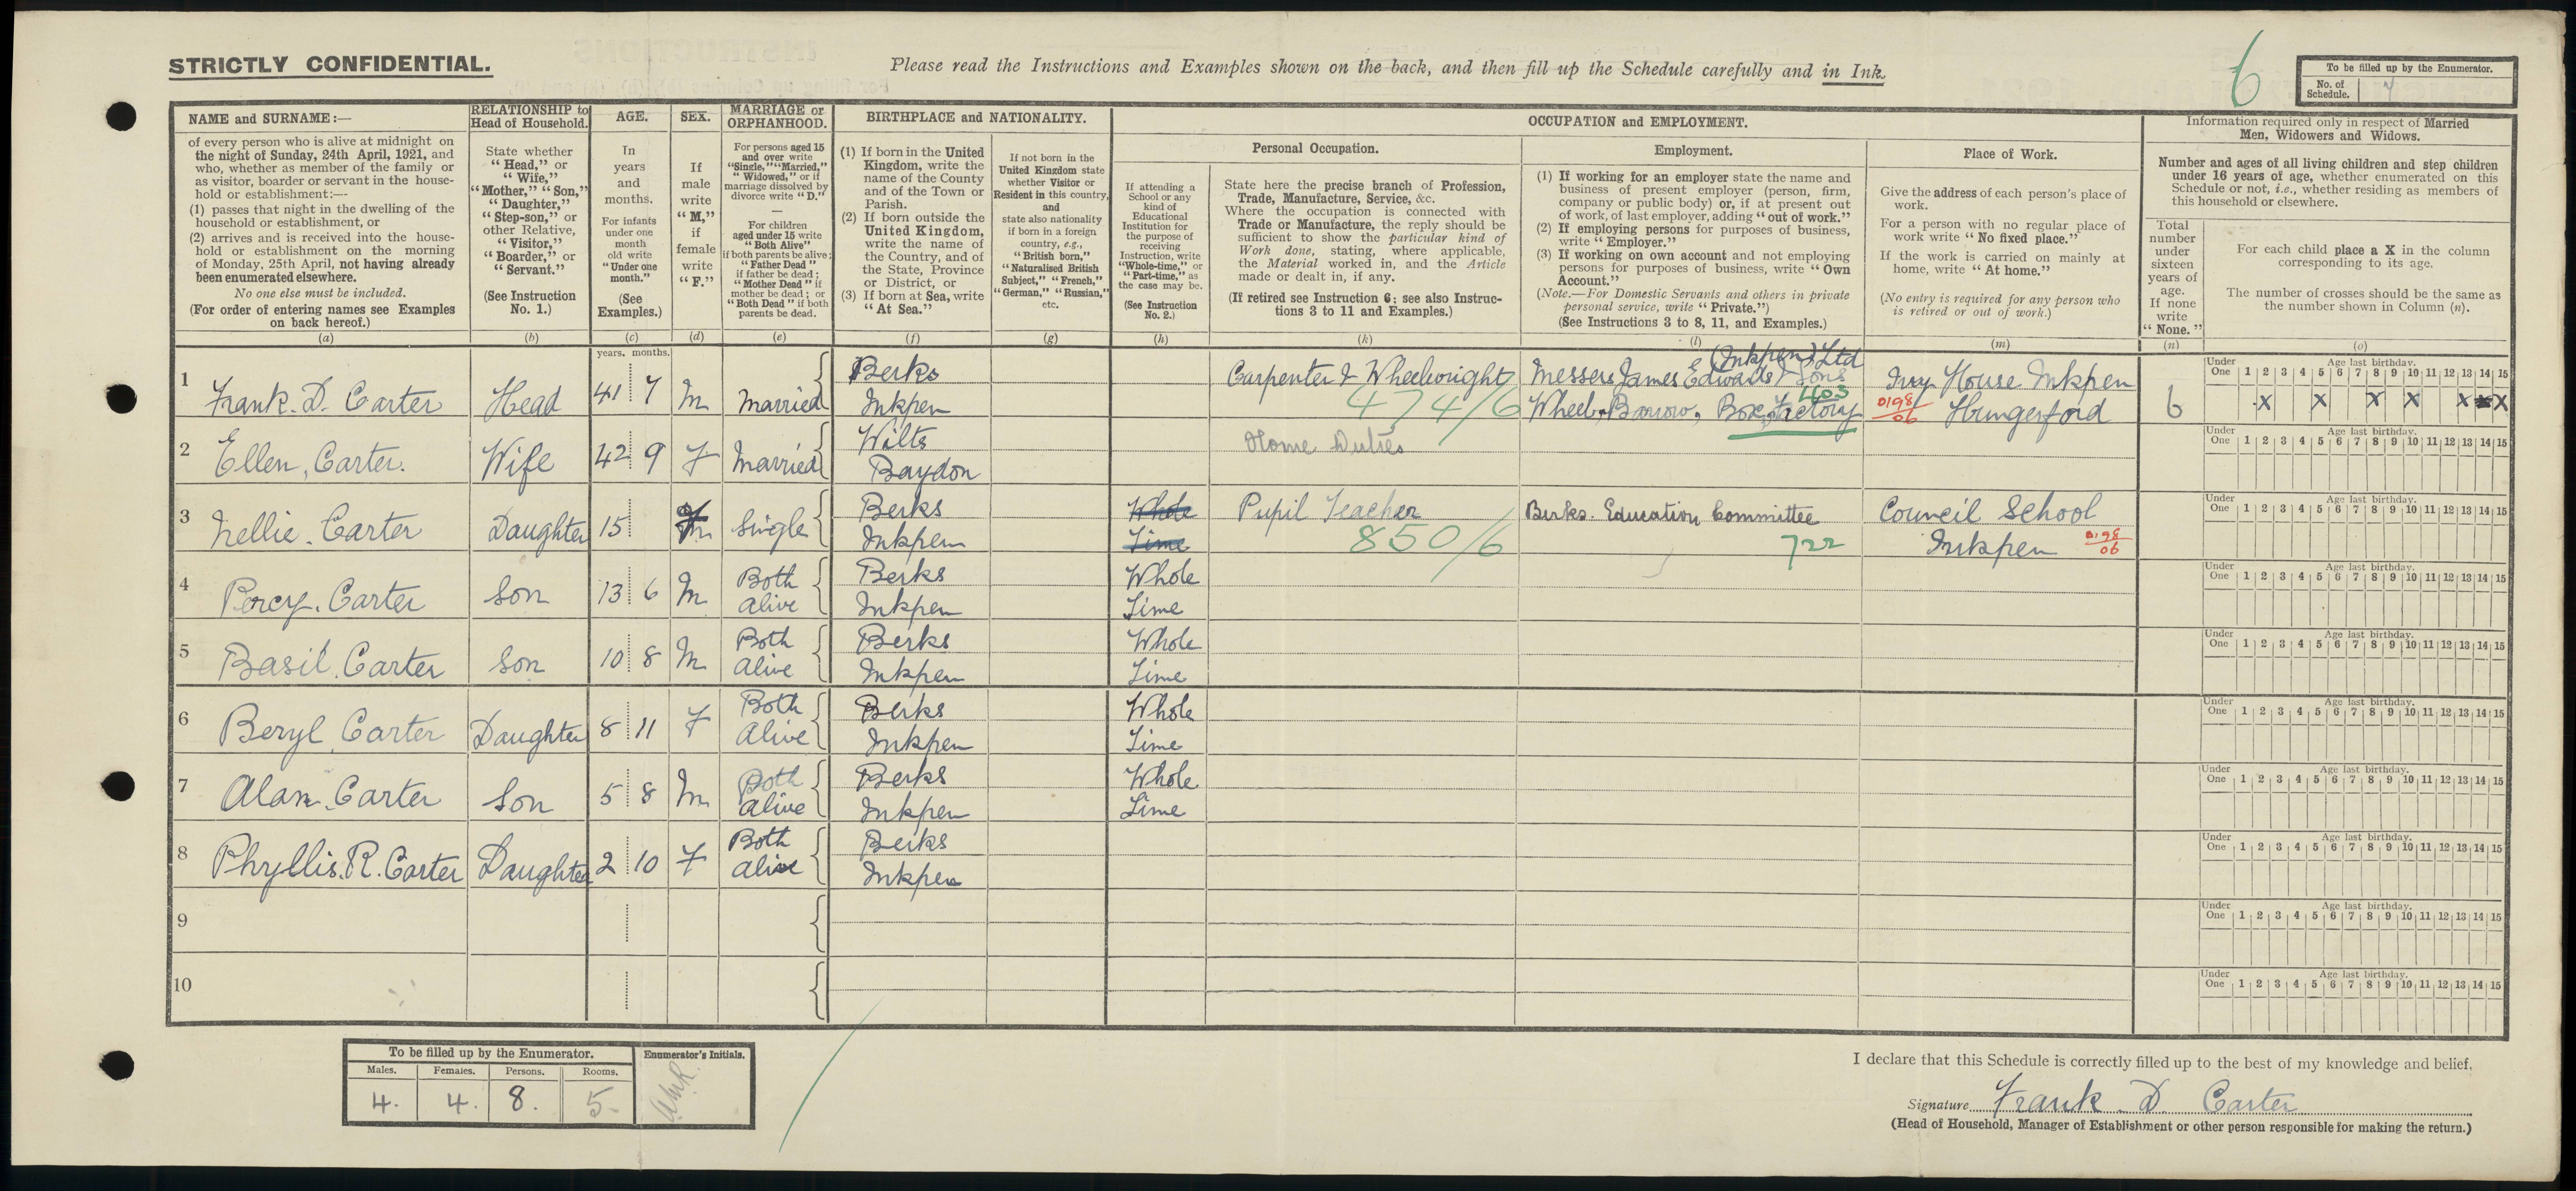 STRICTLY CONFIDENTIAL.
Please read the Instructions and Examples shown on the back, and then fill up the Schedule carefully and in Ink.
6
To be filled up by the Enumerator.
No. of Schedule.
NAME and SURNAME:—
of every person who is alive at midnight on
the night of Sunday, 24th April, 1921, and
who, whether as member of the family or
as visitor, boarder or servant in the house-
hold or establishment:—
(1) passes that night in the dwelling of the
household or establishment, or
(2) arrives and is received into the house-
hold or establishment on the morning
of Monday, 25th April, not having already
been enumerated elsewhere.
No one else must be included.
(For order of entering names see Examples
on back hereof.)
(a)
RELATIONSHIP to
Head of Household.
State whether
"Head," or
"Wife,"
"Mother," "Son,"
"Daughter,"
"Step-son," or
other Relative,
"Visitor,"
"Boarder," or
"Servant."
(See Instruction
No. 1.)
(b)
AGE.
In
years
and
months.
For infants
under one
month
old write
"Under one
month."
(See
Examples.)
(c)
SEX.
If
male
write
"M,"
if
female
write
"F."
(d)
MARRIAGE or
ORPHANHOOD.
For persons aged 15
and over write
"Single," "Married,"
"Widowed," or if
marriage dissolved by
divorce write "D."
—
For children
aged under 15 write
"Both Alive"
if both parents be alive;
"Father Dead"
if father be dead;
"Mother Dead" if
mother be dead; or
"Both Dead" if both
parents be dead.
(e)
BIRTHPLACE and NATIONALITY.
(1) If born in the United
Kingdom, write the
name of the County
and of the Town or
Parish.
(2) If born outside the
United Kingdom,
write the name of
the Country, and of
the State, Province
or District, or
(3) If born at Sea, write
"At Sea."
(f)
If not born in the
United Kingdom state
whether Visitor or
Resident in this country,
and
state also nationality
if born in a foreign
country, e.g.,
"British born,"
"Naturalised British
Subject," "French,"
"German," "Russian,"
etc.
(g)
OCCUPATION and EMPLOYMENT.
If attending a
School or any
kind of
Educational
Institution for
the purpose of
receiving
Instruction, write
"Whole-time," or
"Part-time," as
the case may be.
(See Instruction
No. 2.)
(h)
Personal Occupation.
State here the precise branch of Profession,
Trade, Manufacture, Service, &c.
Where the occupation is connected with
Trade or Manufacture, the reply should be
sufficient to show the particular kind of
Work done, stating, where applicable,
the Material worked in, and the Article
made or dealt in, if any.
(If retired see Instruction 6; see also Instruc-
tions 3 to 11 and Examples.)
(k)
Employment.
(1) If working for an employer state the name and
business of present employer (person, firm,
company or public body) or, if at present out
of work, of last employer, adding "out of work."
(2) If employing persons for purposes of business,
write "Employer."
(3) If working on own account and not employing
persons for purposes of business, write "Own
Account."
(Note.—For Domestic Servants and others in private
personal service, write "Private.")
(See Instructions 3 to 8, 11, and Examples.)
(l)
Place of Work.
Give the address of each person's place of
work.
For a person with no regular place of
work write "No fixed place."
If the work is carried on mainly at
home, write "At home."
(No entry is required for any person who
is retired or out of work.)
(m)
Information required only in respect of Married
Men, Widowers and Widows.
Number and ages of all living children and step children
under 16 years of age, whether enumerated on this
Schedule or not, i.e., whether residing as members of
this household or elsewhere.
Total
number
under
sixteen
years of
age.
If none
write
"None."
(n)
For each child place a X in the column
corresponding to its age.
The number of crosses should be the same as
the number shown in Column (n).
(o)
years. months.
1 Frank. D. Carter Head 41 7 M Married Berks Inkpen
Carpenter & Wheelwright 474/6
(Inkpen) Ltd
Messers James Edwards & Sons
Wheel, Barrow, Box, Factory
Ivy House Inkpen
0198/06 Hungerford
6
Under One Age last birthday. 1 2 3 4 5 6 7 8 9 10 11 12 13 14 15
X X X X X X
2 Ellen, Carter. Wife 42 9 F Married Wilts Baydon
Home Duties
Under One Age last birthday. 1 2 3 4 5 6 7 8 9 10 11 12 13 14 15
3 Nellie. Carter Daughter 15 F Single Berks Inkpen
Whole Time
Pupil Teacher 850/6
Berks. Education Committee 722
Council School Inkpen 0198/06
Under One Age last birthday. 1 2 3 4 5 6 7 8 9 10 11 12 13 14 15
4 Percy. Carter Son 13 6 M Both Alive Berks Inkpen Whole Time
Under One Age last birthday. 1 2 3 4 5 6 7 8 9 10 11 12 13 14 15
5 Basil. Carter Son 10 8 M Both Alive Berks Inkpen Whole Time
Under One Age last birthday. 1 2 3 4 5 6 7 8 9 10 11 12 13 14 15
6 Beryl Carter Daughter 8 11 F Both Alive Berks Inkpen Whole Time
Under One Age last birthday. 1 2 3 4 5 6 7 8 9 10 11 12 13 14 15
7 Alan. Carter Son 5 8 M Both Alive Berks Inkpen Whole Time
Under One Age last birthday. 1 2 3 4 5 6 7 8 9 10 11 12 13 14 15
8 Phyllis. R. Carter Daughter 2 10 F Both Alive Berks Inkpen
Under One Age last birthday. 1 2 3 4 5 6 7 8 9 10 11 12 13 14 15
9
Under One Age last birthday. 1 2 3 4 5 6 7 8 9 10 11 12 13 14 15
10
Under One Age last birthday. 1 2 3 4 5 6 7 8 9 10 11 12 13 14 15
To be filled up by the Enumerator.
Males. Females. Persons. Rooms.
4. 4. 8. 5.
Enumerator's Initials.
I declare that this Schedule is correctly filled up to the best of my knowledge and belief.
Signature Frank. D. Carter
(Head of Household, Manager of Establishment or other person responsible for making the return.)